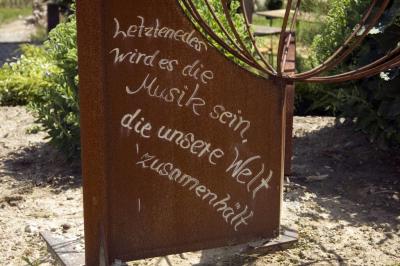 Letztenedes
wird es die
Musik sein,
die unsere Welt
zusammenhält